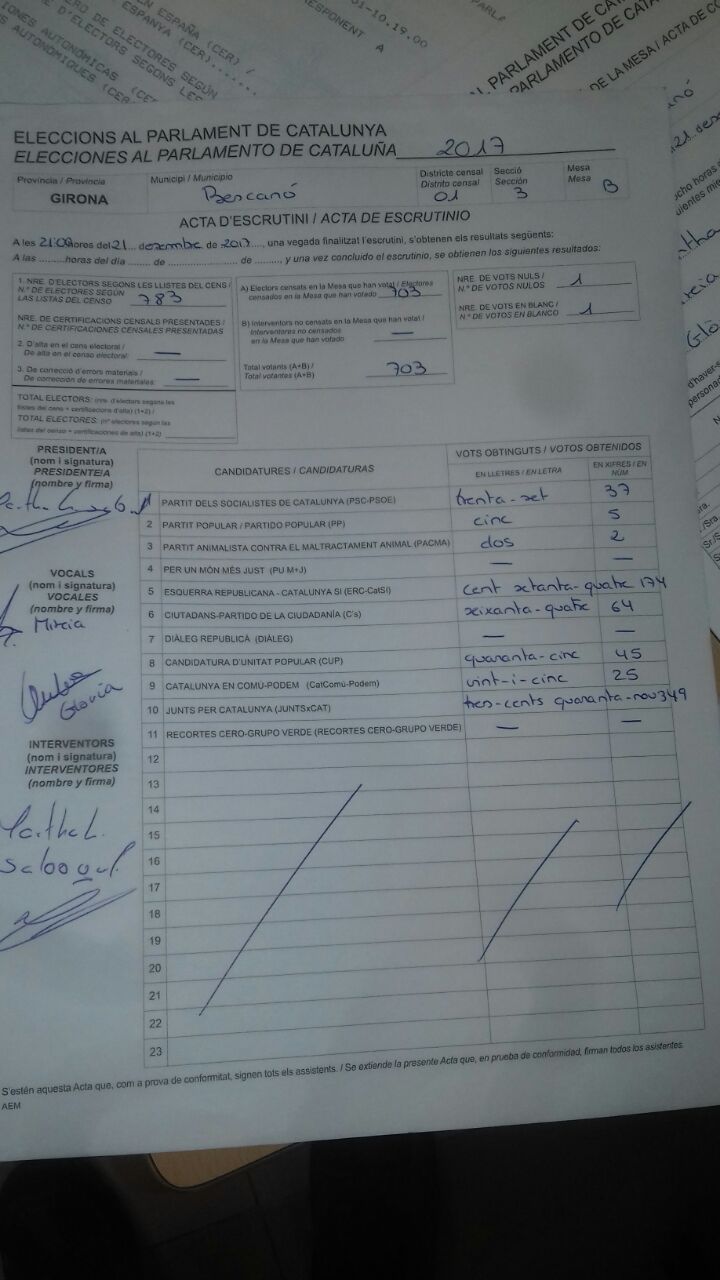 EN ESPAÑA (CER) /
ERO DE ELECTORES SEGÚN
ESPANYA (CER).......
E D'ELECTORS SEGONS LES
IONES AUTONÓMICAS
S AUTONÒMIQUES (CER
RESPONENT A
01-10.19.00
AL PARLAMENT DE CAT
PARLAMENTO DE CATAL
DE LA MESA / ACTA DE CO
ELECCIONS AL PARLAMENT DE CATALUNYA
ELECCIONES AL PARLAMENTO DE CATALUÑA 2017
Província / Provincia
GIRONA
Municipi / Municipio
Bescanó
Districte censal
Distrito censal
01
Secció
Sección
3
Mesa
Mesa
B
ACTA D'ESCRUTINI / ACTA DE ESCRUTINIO
A les 21:00 hores del 21 desembre de 2017, una vegada finalitzat l'escrutini, s'obtenen els resultats següents:
A las .......... horas del día ....... de ....................... de ........., y una vez concluido el escrutinio, se obtienen los siguientes resultados:
1. NRE. D'ELECTORS SEGONS LES LLISTES DEL CENS /
N.º DE ELECTORES SEGÚN
LAS LISTAS DEL CENSO 783
NRE. DE CERTIFICACIONS CENSALS PRESENTADES /
N.º DE CERTIFICACIONES CENSALES PRESENTADAS
2. D'alta en el cens electoral /
De alta en el censo electoral: —
3. De correcció d'errors materials /
De corrección de errores materiales: —
TOTAL ELECTORS: (nre. d'electors segons les
llistes del cens + certificacions d'alta) (1+2) /
TOTAL ELECTORES: (nº electores según las
listas del censo + certificaciones de alta) (1+2)
A) Electors censats en la Mesa que han votat / Electores
censados en la Mesa que han votado 703
B) Interventors no censats en la Mesa que han votat /
Interventores no censados
en la Mesa que han votado —
Total votants (A+B) /
Total votantes (A+B) 703
NRE. DE VOTS NULS /
N.º DE VOTOS NULOS 1
NRE. DE VOTS EN BLANC /
N.º DE VOTOS EN BLANCO 1
PRESIDENT/A
(nom i signatura)
PRESIDENTE/A
(nombre y firma)
VOCALS
(nom i signatura)
VOCALES
(nombre y firma)
Mircia
Glòria
INTERVENTORS
(nom i signatura)
INTERVENTORES
(nombre y firma)
CANDIDATURES / CANDIDATURAS
VOTS OBTINGUTS / VOTOS OBTENIDOS
EN LLETRES / EN LETRA
EN XIFRES / EN NÚM
1 PARTIT DELS SOCIALISTES DE CATALUNYA (PSC-PSOE) trenta-set 37
2 PARTIT POPULAR / PARTIDO POPULAR (PP) cinc 5
3 PARTIT ANIMALISTA CONTRA EL MALTRACTAMENT ANIMAL (PACMA) dos 2
4 PER UN MÓN MÉS JUST (PU M+J) — —
5 ESQUERRA REPUBLICANA - CATALUNYA SI (ERC-CatSí) cent setanta-quatre 174
6 CIUTADANS-PARTIDO DE LA CIUDADANÍA (C's) seixanta-quatre 64
7 DIÀLEG REPUBLICÀ (DIÀLEG) — —
8 CANDIDATURA D'UNITAT POPULAR (CUP) quaranta-cinc 45
9 CATALUNYA EN COMÚ-PODEM (CatComú-Podem) vint-i-cinc 25
10 JUNTS PER CATALUNYA (JUNTSxCAT) tres-cents quaranta-nou 349
11 RECORTES CERO-GRUPO VERDE (RECORTES CERO-GRUPO VERDE) — —
12
13
14
15
16
17
18
19
20
21
22
23
S'estén aquesta Acta que, com a prova de conformitat, signen tots els assistents. / Se extiende la presente Acta que, en prueba de conformidad, firman todos los asistentes.
AEM